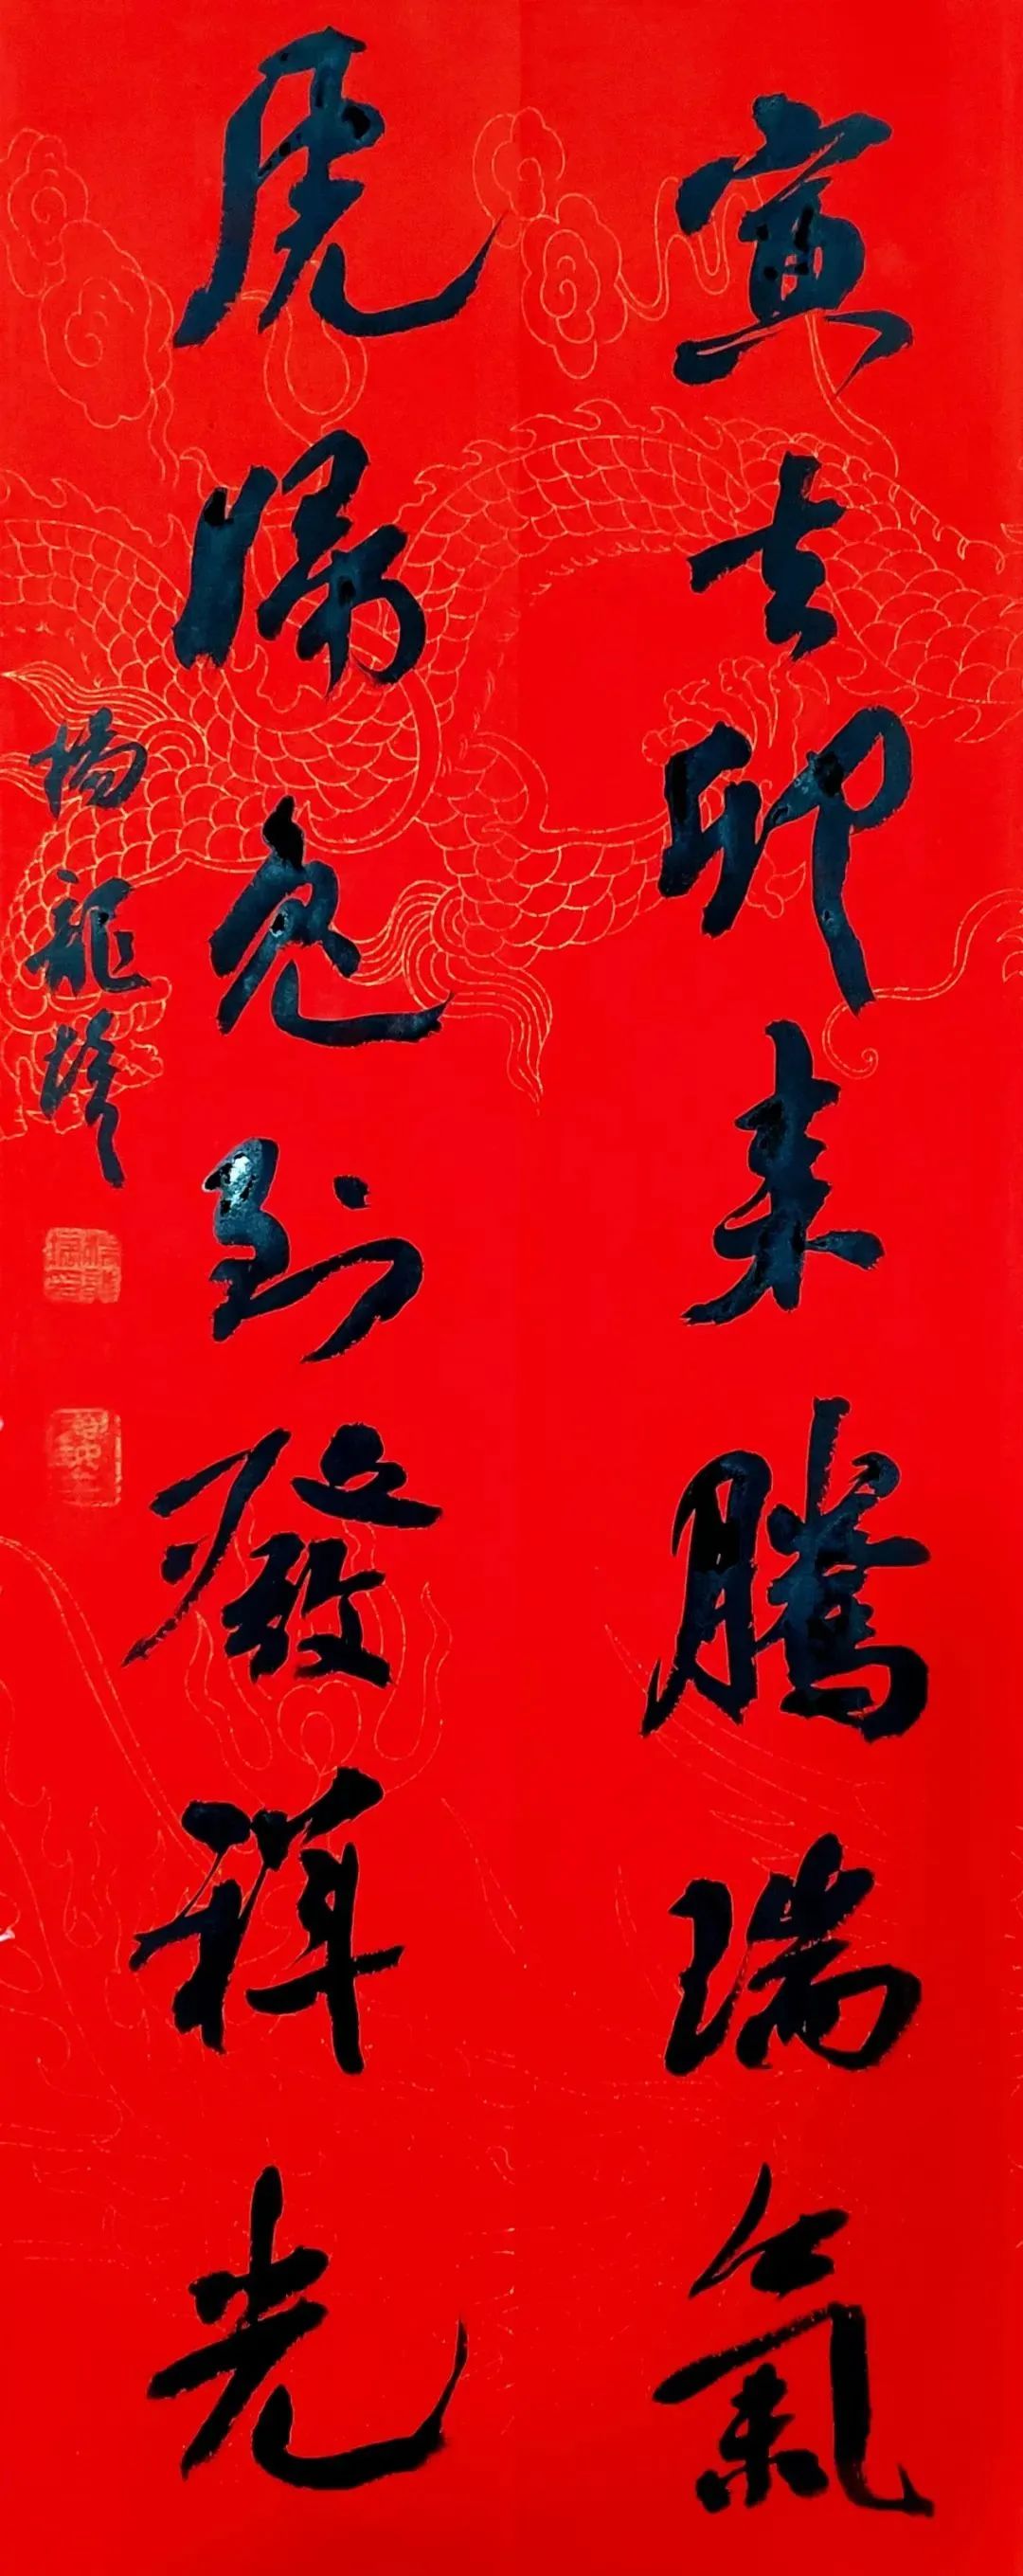 寅去卯来腾瑞氣
虎歸兔到發祥光
楊龍